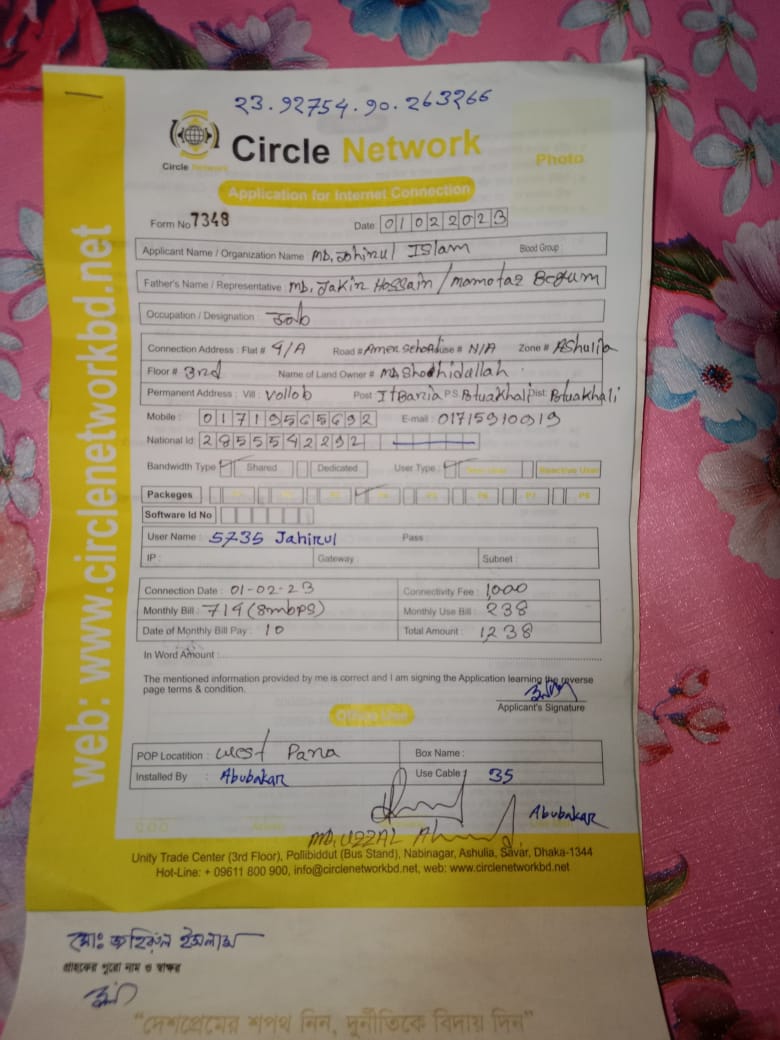 23.92754.90.263266
Circle Network
Circle Network
Photo
Application for Internet Connection
Form No 7348
Date 01022023
Applicant Name / Organization Name Md. Johirul Islam Blood Group :
Father's Name / Representative Md. Jakir Hossain / Mamotaz Begum
Occupation / Designation : Job
Connection Address : Flat # 4/A Road # N/A Zone # Ashulia
Floor # 3rd Name of Land Owner # Md Shohidallah
Permanent Address : Vill : Vollob Post : ItBaria P.S Dist.
Mobile : 01719565692 E-mail : 01715910919
National Id: 2855542292
Bandwidth Type Shared Dedicated User Type :
Packeges P6 P7 P8
Software Id No
User Name : 5735 Jahirul Pass :
IP : Gateway : Subnet :
Connection Date : 01-02-23 Connectivity Fee : 1,000
Monthly Bill : 714 (8mbps) Monthly Use Bill : 238
Date of Monthly Bill Pay : 10 Total Amount : 1238
In Word Amount :
The mentioned information provided by me is correct and I am signing the Application learning the reverse
page terms & condition.
Applicant's Signature
POP Locatition : West Para Box Name :
Installed By : Abubakar Use Cable : 35
Abubakar
Md. UZZAL
Unity Trade Center (3rd Floor), Pollibiddut (Bus Stand), Nabinagar, Ashulia, Savar, Dhaka-1344
Hot-Line: + 09611 800 900, info@circlenetworkbd.net, web: www.circlenetworkbd.net
web: www.circlenetworkbd.net
মোঃ জহিরুল ইসলাম
গ্রাহকের পুরো নাম ও স্বাক্ষর
"দেশপ্রেমের শপথ নিন, দুর্নীতিকে বিদায় দিন"